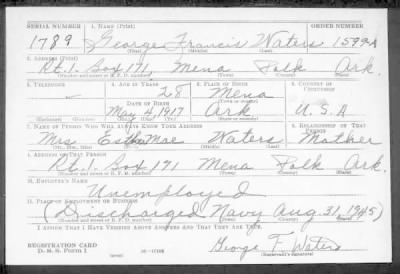 SERIAL NUMBER 1. NAME (Print) ORDER NUMBER
1789 George Francis Waters 1599-A
(First) (Middle) (Last)
2. ADDRESS (Print)
Rt. 1. Box 171, Mena Polk Ark.
(Number and street or R. F. D. number) (Town) (County) (State)
3. TELEPHONE 4. AGE IN YEARS 5. PLACE OF BIRTH 6. COUNTRY OF CITIZENSHIP
28 Mena
DATE OF BIRTH (Town or county)
May 4 1917 Ark U.S.A
(Mo.) (Day) (Yr.) (State or country)
7. NAME OF PERSON WHO WILL ALWAYS KNOW YOUR ADDRESS 8. RELATIONSHIP OF THAT PERSON
Mrs. Mae Waters Mother
(Mr., Mrs., Miss) (First) (Middle) (Last)
9. ADDRESS OF THAT PERSON
Rt. 1. Box 171 Mena Polk Ark.
(Number and street or R. F. D. number) (Town) (County) (State)
10. EMPLOYER'S NAME
Unemployed
11. PLACE OF EMPLOYMENT OR BUSINESS
(Discharged Navy Aug 31, 1945)
(Number and street or R. F. D. number) (Town) (County) (State)
I AFFIRM THAT I HAVE VERIFIED ABOVE ANSWERS AND THAT THEY ARE TRUE.
REGISTRATION CARD
D. S. S. Form 1 George F. Waters
(Registrant's signature)